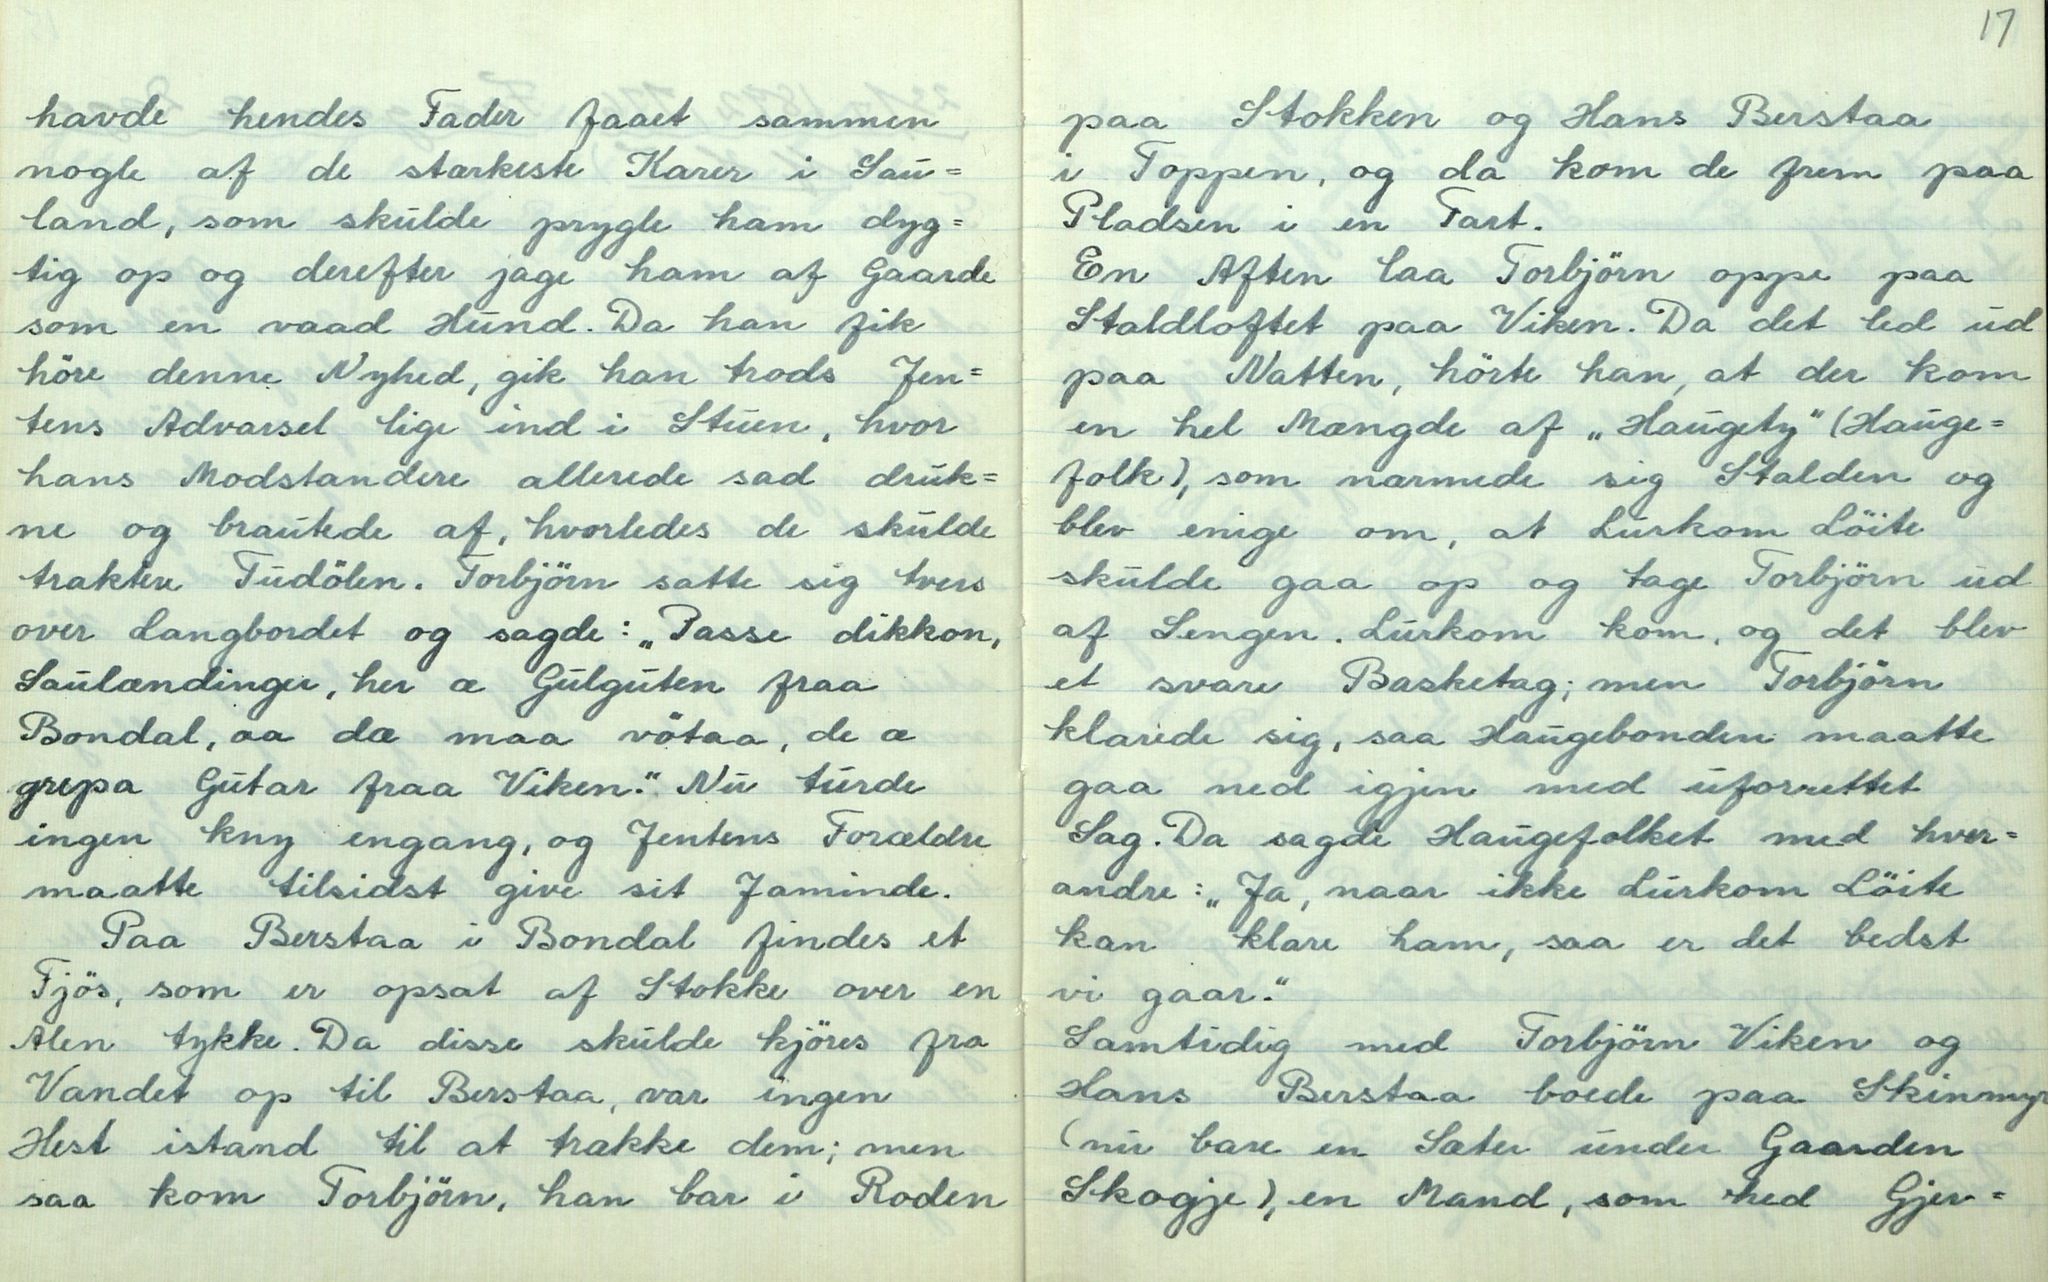 havde hendes Fader faaet sammen
nogle af de stærkeste Karer i Sau=
land, som skulde prygle ham dyg=
tig op og derefter jage ham af Gaarde
som en vaad Hund. Da han fik
höre denne Nyhed, gik han trods Jen=
tens Advarsel lige ind i Stuen, hvor
hans Modstandere allerede sad druk=
ne og brautede af, hvorledes de skulde
traktere Tudölen. Torbjörn satte sig tvers
over Langbordet og sagde: „Passe dikkon,
Saulændinger, her æ Gulguten fraa
Bondal, aa dæ maa vötaa, de æ
grepa Gutar fraa Viken." Nu turde
ingen kny engang, og Jentens Forældre
maatte tilsidst give sit Jaminde.
Paa Berstaa i Bondal findes et
Fjös, som er opsat af Stokke over en
Alen tykke. Da disse skulde kjöres fra
Vandet op til Berstaa, var ingen
Hest istand til at trække dem; men
saa kom Torbjörn, han bar i Roden
17
paa Stokken og Hans Berstaa
i Toppen, og da kom de frem paa
Pladsen i en Fart.
En Aften laa Torbjörn oppe paa
Staldloftet paa Viken. Da det led ud
paa Natten, hörte han, at der kom
en hel Mængde af „Haugety" (Hauge=
folk), som nærmede sig Stalden og
blev enige om, at Lurkom Löite
skulde gaa op og tage Torbjörn ud
af Sengen. Lurkom kom, og det blev
et svare Basketag; men Torbjörn
klarede sig, saa Haugebonden maatte
gaa ned igjen med uforrettet
Sag. Da sagde Haugefolket med hver=
andre: „Ja, naar ikke Lurkom Löite
kan klare ham, saa er det bedst
vi gaar."
Samtidig med Torbjörn Viken og
Hans Berstaa boede paa Skinmyr
(nu bare en Sæter under Gaarden
Skogje), en Mand, som hed Gjer=